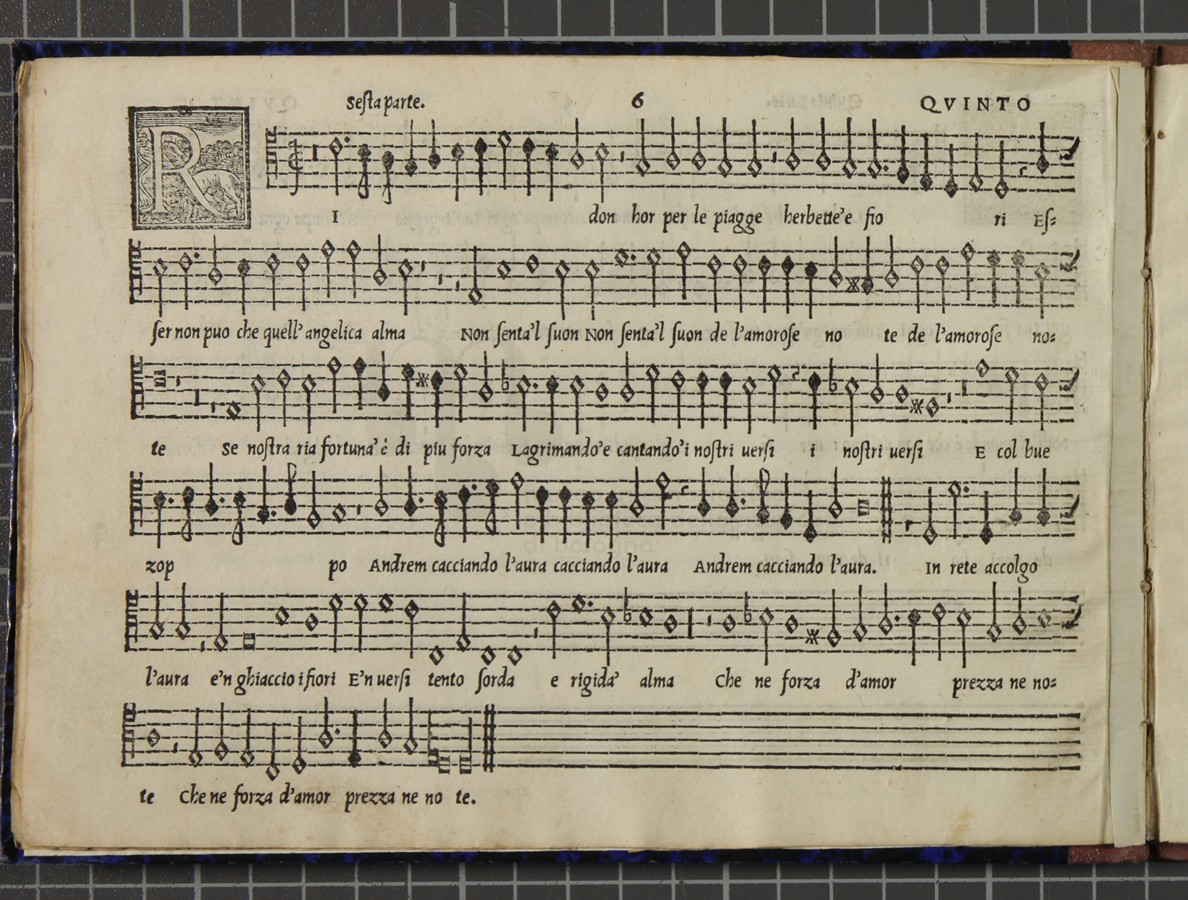 Sesta parte. 6 QVINTO
R I don hor per le piagge herbette'e fio ri Es-
ser non puo che quell'angelica alma Non senta'l suon Non senta'l suon de l'amorose no te de l'amorose no-
te Se nostra ria fortuna'è di piu forza Lagrimando'e cantando'i nostri uersi i nostri uersi E col bue
zop po Andrem cacciando l'aura cacciando l'aura Andrem cacciando l'aura. In rete accolgo
l'aura e'n ghiaccio i fiori E'n uersi tento sorda e rigida' alma Che ne forza d'amor prezza ne no-
te Che ne forza d'amor prezza ne no te.